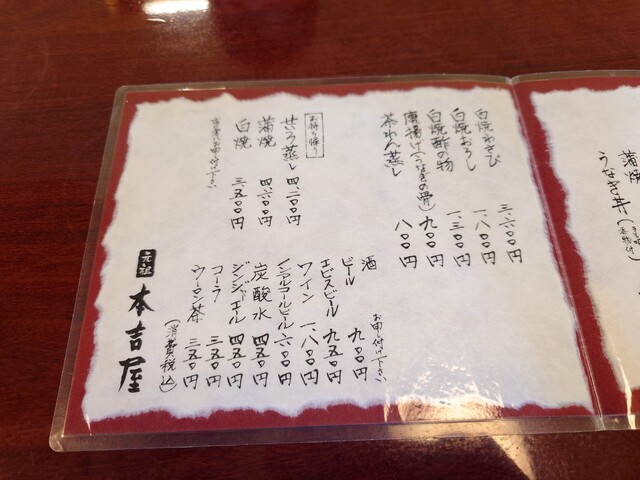 蒲焼
うなぎ丼
白焼わさび 三、六〇〇円
白焼おろし 一、八〇〇円
白焼酢の物 一、三〇〇円
唐揚げ(うなぎの骨) 九〇〇円
茶わん蒸し 八〇〇円
お持ち帰り
せいろ蒸し 四、二〇〇円
蒲焼 四、六〇〇円
白焼 三、五〇〇円
お申し付け下さい
酒 お申し付け下さい
ビール 九〇〇円
エビスビール 九五〇円
ワイン 一、八〇〇円
ノンアルコールビール 六〇〇円
炭酸水 四五〇円
ジンジャーエール 四五〇円
コーラ 三五〇円
ウーロン茶 三五〇円
(消費税込)
元祖 本吉屋